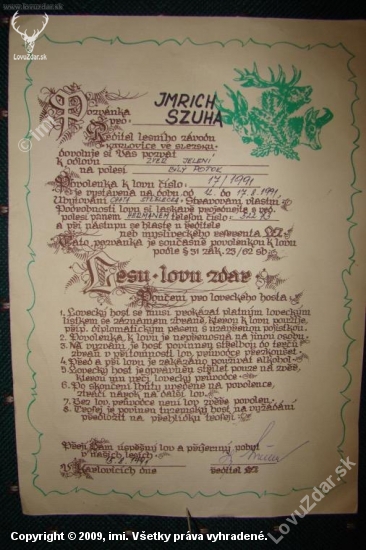 www.lovuzdar.sk
LovuZdar.sk
Pozvánka
pro:
JMRICH
SZUHA
Ředitel lesního závodu
Karlovice ve Slezsku
dovoluje si Vás pozvat
k odlovu ZVĚŘ JELENÍ
na polesí BÍLÝ POTOK
Povolenka k lovu číslo: 17/1991
je vystavena na dobu od do 17.8.1991
Ubytování CHATA Stravování vlastní
Podrobnosti lovu si laskavě projednejte s
polesí pánem telefon číslo:
při nástupu se hlaste u ředitele
neb mysliveckého referenta LZ
Tato pozvánka je současně povolenkou k lovu
podle § 31 zák. 23/62 sb
Lesu - lovu zdar
Poučení pro loveckého hosta
1. Lovecký host se musí prokázat platným loveckým
lístkem se záznamem zbraně, kterou k lovu použije,
příp. diplomatickým pasem s uzavřenou pojistkou.
2. Povolenka k lovu je nepřenosná na jinou osobu.
3. Na vyzvání je host povinnen střelbou do terče
zbraň v přítomnosti lov. průvodce přezkoušet.
4. Před a při lovu je zakázáno používat alkohol.
5. Lovecký host je oprávněn střílet pouze na zvěř,
kterou mu určí lovecký průvodce.
6. Po skončení lhůty uvedené na povolence,
ztrácí nárok na další lov.
7. Bez lov. průvodce není lov zvěře povolen.
8. Trofej je povinen tuzemský host na vyžádání
předložit na přehlídku trofejí.
Přeji Vám úspěšný lov a příjemný pobyt
v našich lesích.
V Karlovicích dne 15.8.1991 ředitel LZ
LovuZdar.sk
Copyright © 2009, imi. Všetky práva vyhradené.